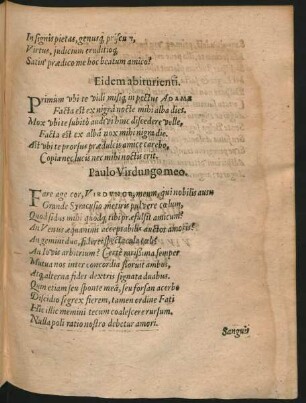 Insignis pietas, genusq́, priscum,
Virtus, judicium eruditioq́,
Satin' prædico me hoc beatum amico?
Eidem abiturienti.
Primùm ubi te vidi misiq́, in pectus ADAME
Facta est ex nigrâ nocte mihi alba dies,
Mox ubi te subitò audivi hinc discedere velle,
Facta est ex albâ nox mihi nigra die.
Ast ubi te prorsus prædulcis amice carebo,
Copia nec lucis nec mihi noctis erit.
Paulo Virdungo meo.
Fare age cor, VIRDUNGE, meum, qui nobilis
Grande Syracusio metiris pulvere cœlum,
Quod sidus mihi quodq́, tibi præfulsit amicum?
An Venus æquanimis acceptabilis auctor amoris?
An gemini duo,
An Jovis arbitrium? Certè carissima semper
Mutua nos inter concordia floruit ambos,
Atq́, alterna fides dextris signata duabus.
Quin etiam seu sponte meâ, seu forsan acerbo
Discidio segrex fierem, tamen ordine Fati
Hic illic memini tecum coalescere rursum,
Nulla poli ratio nostro debetur amori.
Sanguis